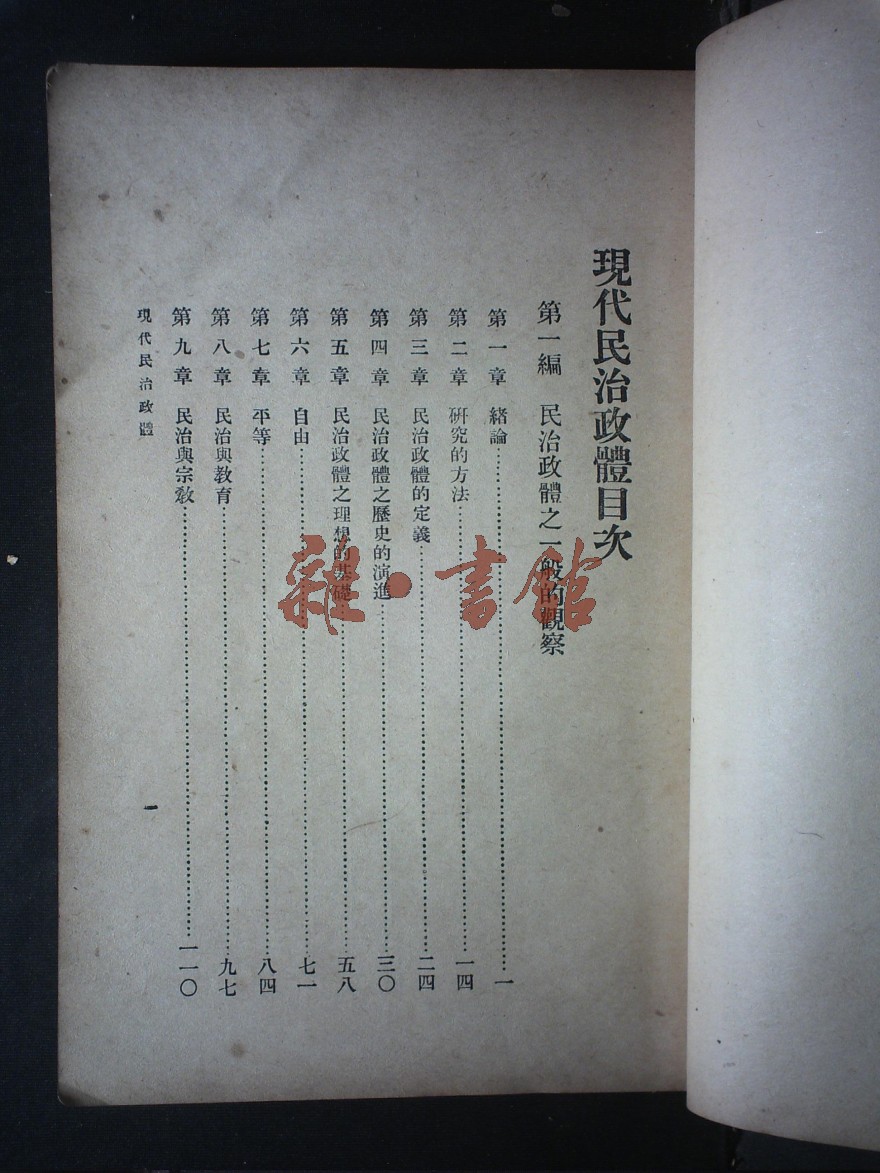 現代民治政體目次
第一編 民治政體之一般的觀察
第一章 緒論……一
第二章 硏究的方法……一四
第三章 民治政體的定義……二四
第四章 民治政體之歷史的演進……三〇
第五章 民治政體之理想的基礎……五八
第六章 自由……七一
第七章 平等……八四
第八章 民治與教育……九七
第九章 民治與宗教……一一〇
現代民治政體
一
雜·書館